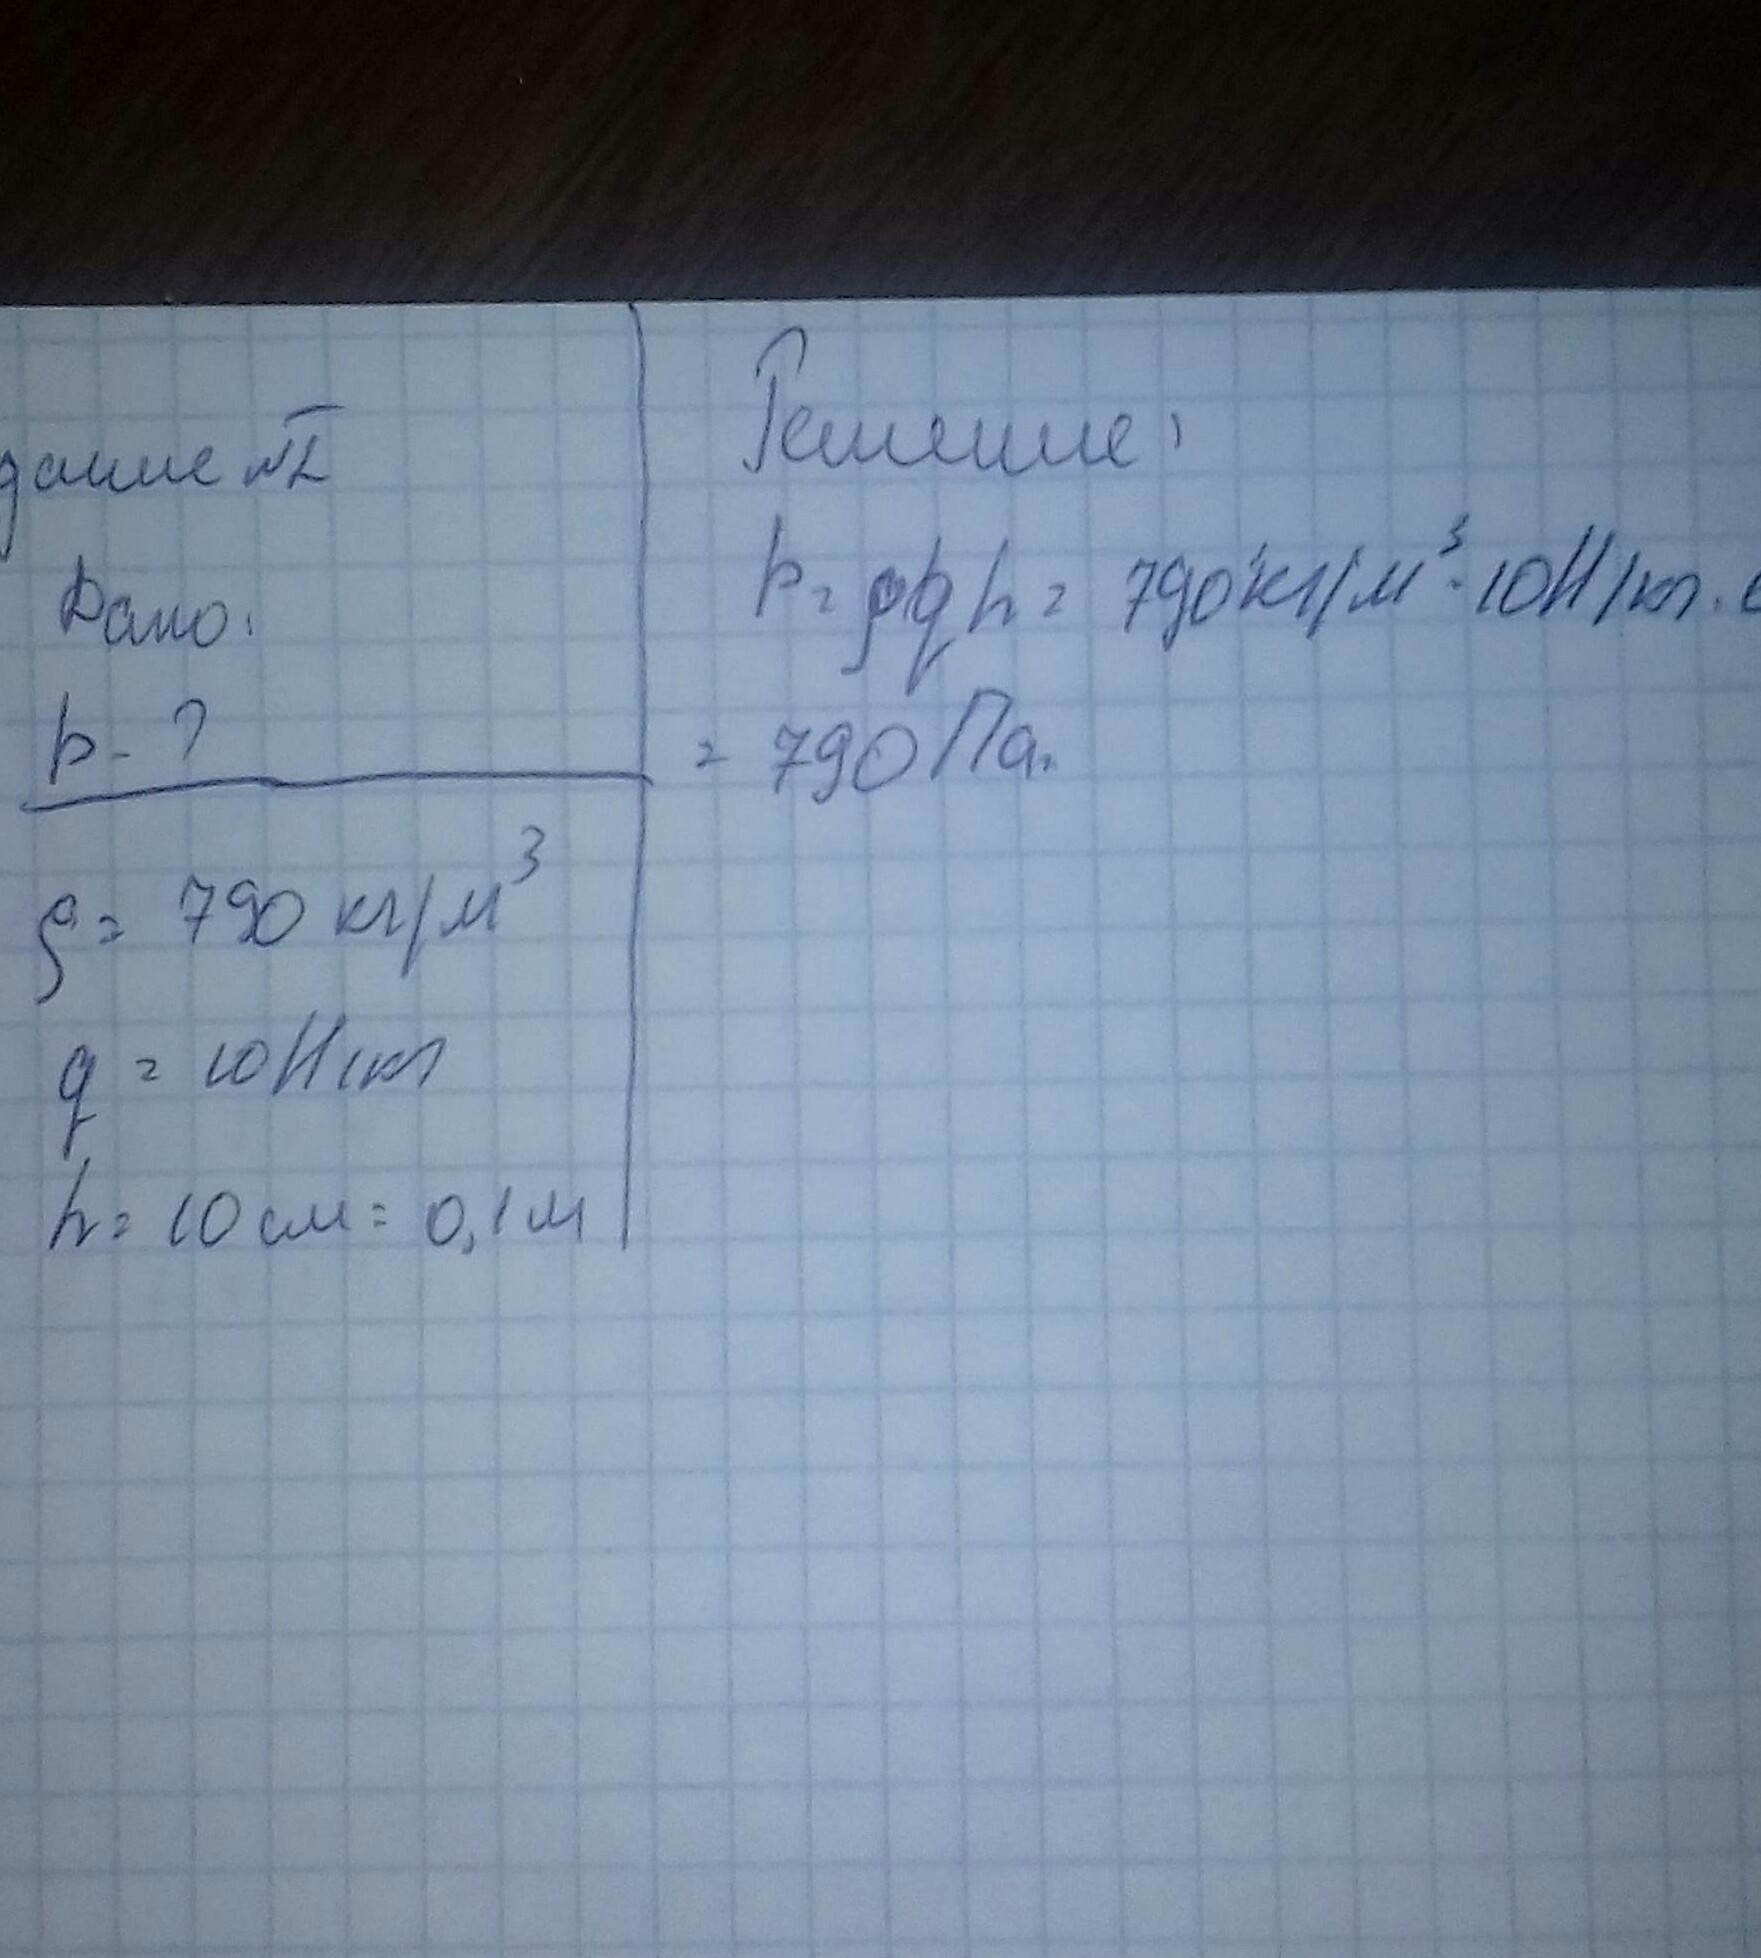 дание №1
Дано:
p - ?
ρ = 790 кг/м³
g = 10Н/кг
h = 10 см = 0,1м
Решение:
p = ρgh = 790 кг/м³ · 10Н/кг ·
= 790 Па.